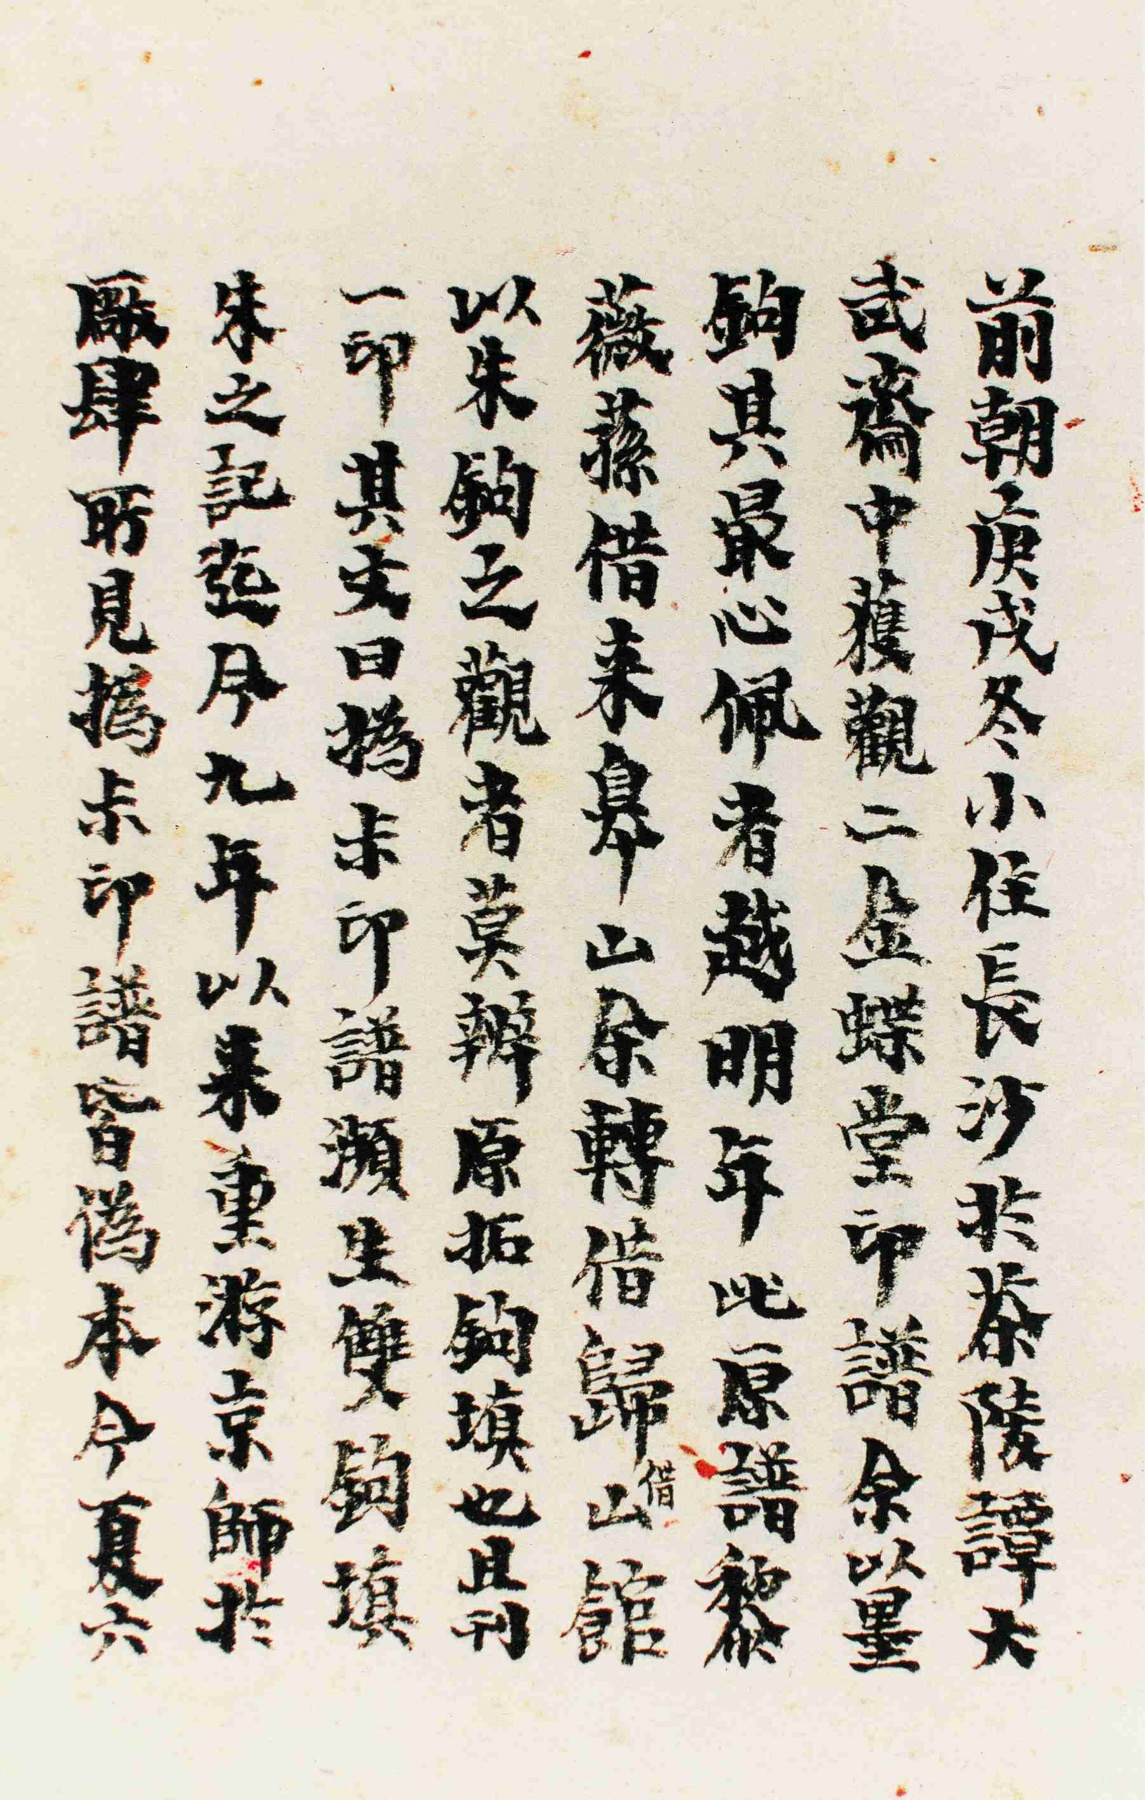 前朝庚戌冬小住長沙於茶陵譚大
武齋中獲觀二金蝶堂印譜余以墨
鉤其最心佩者越明年此原譜黎
薇蓀借来皋山余轉借歸借山館
以朱鉤之觀者莫辨原拓鉤填也且刊
一印其文曰撝尗印譜瀕生雙鉤填
朱之記迄今九年以来重游京師於
厰肆所見撝尗印譜皆偽本今夏六